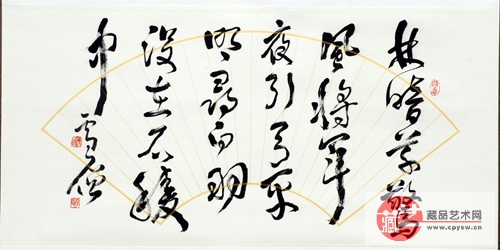 林暗草驚
風將軍
夜引弓平
明尋白羽
没在石稜
中
藏品艺术网
www.cpysw.cn